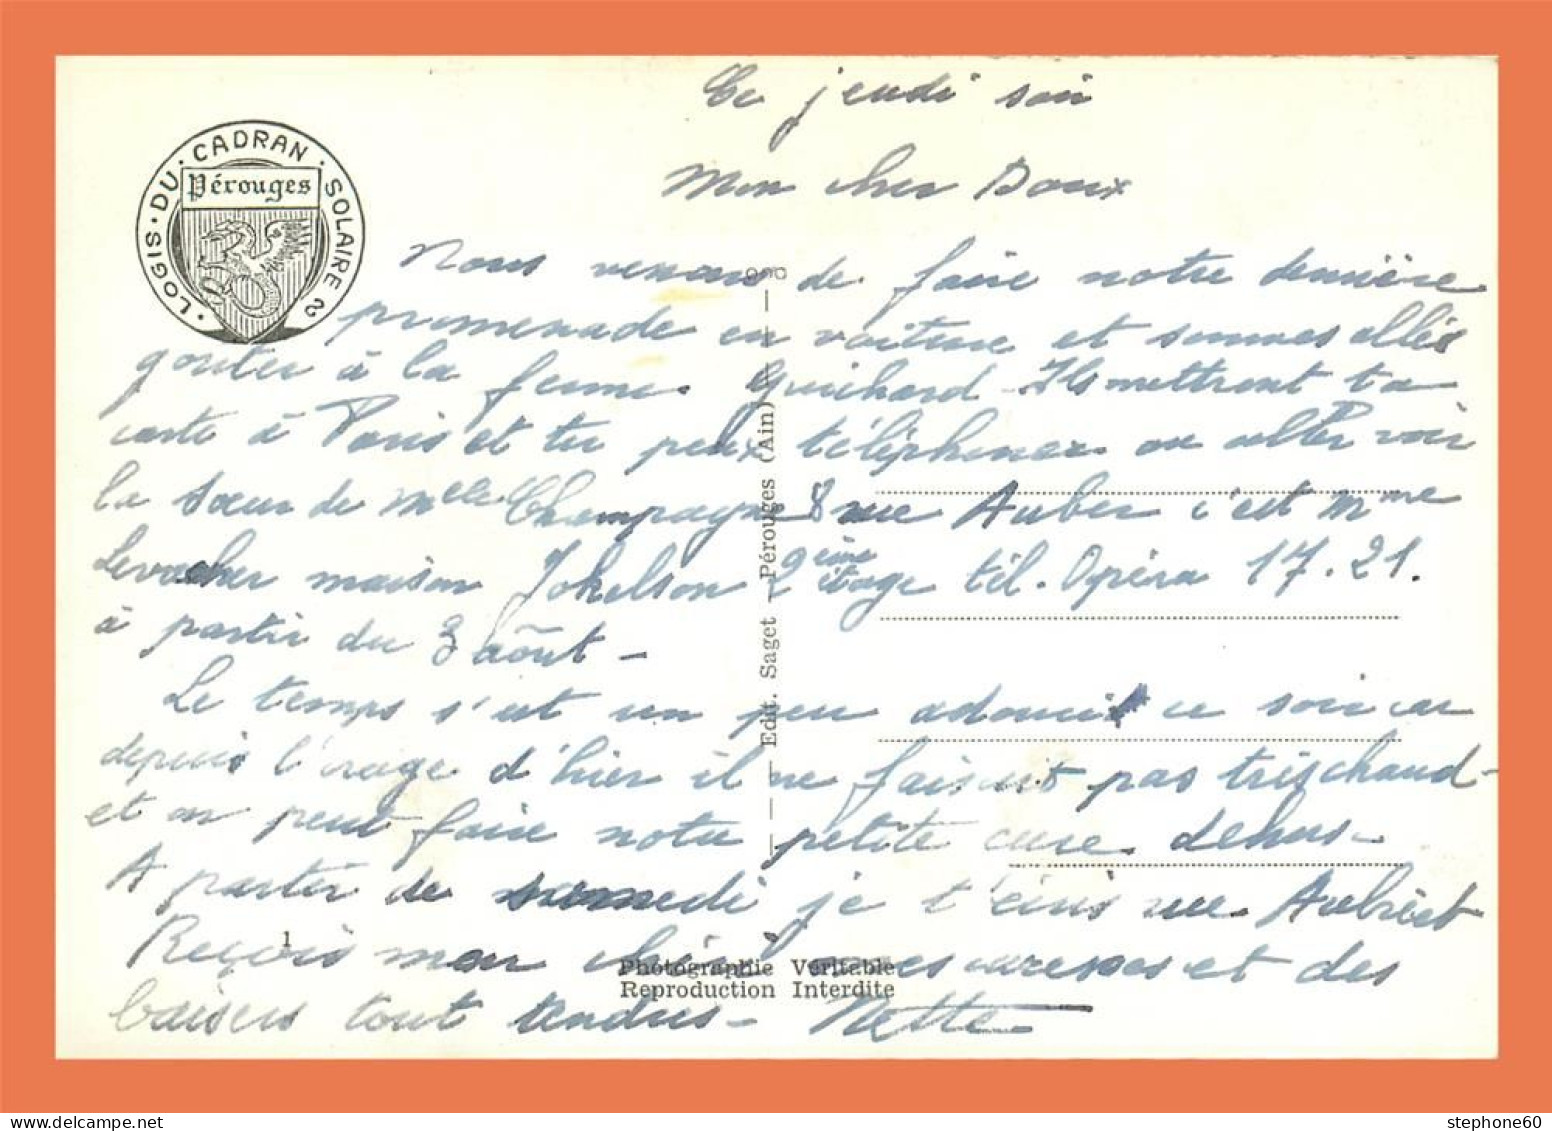 Ce jeudi soir
Mon cher Doux
· LOGIS · DU · CADRAN · SOLAIRE
Pérouges
Nous venons de faire notre dernière
promenade en voiture et sommes allés
gouter à la ferme Guichard - Ils mettront ta
carte à Paris et tu peux téléphoner ou aller voir
la sœur de Melle Champagne 8 rue Auber c'est Mme
Levacher maison Jokelson 2ème étage tél. Opéra 17.21.
à partir du 3 août -
Le temps s'est un peu adouci ce soir car
depuis l'orage d'hier il ne faisait pas très chaud -
et on peut faire notre petite cure dehors -
A partir de samedi je t'écris rue Aubriet
Reçois mon chéri mes caresses et des
baisers tout tendres - Nette
Edit. Saget - Pérouges (Ain)
1
Photographie Véritable
Reproduction Interdite
stephone60